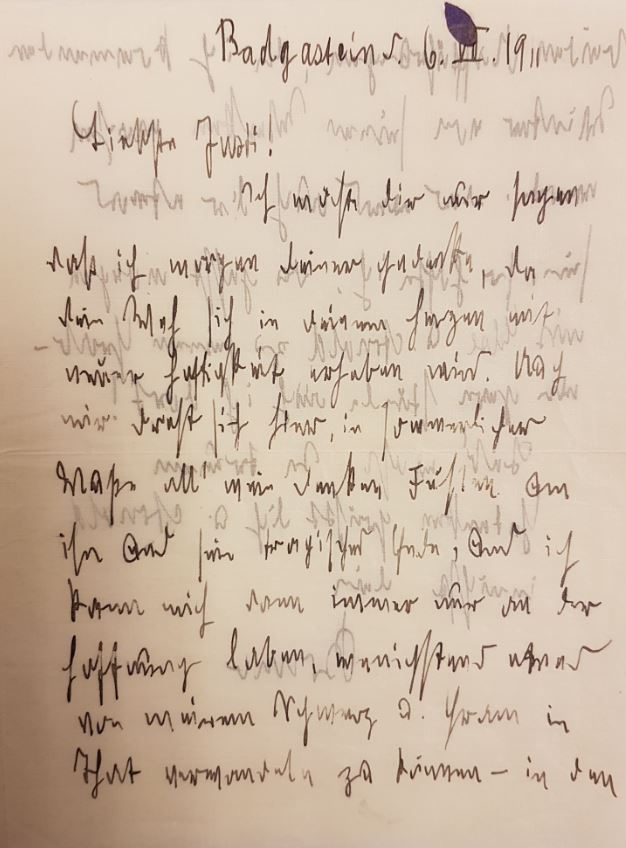 Badgastein d. 6. VI. 1911
Liebste Justi!
Ich möchte dir nur sagen
daß ich morgen deiner gedenke, da
dein Weh sich in deinem Herzen mit
neuer Heftigkeit erheben wird. Auch
mir dreht sich hier, in sommerlicher
all' mein Denken Fühlen um
ihn und sein tragisches Ende, und ich
kann mich dann immer nur an der
Hoffnung laben, wenigstens etwas
von meinem Schmerz u. Gram in
That verwandeln zu können – in den